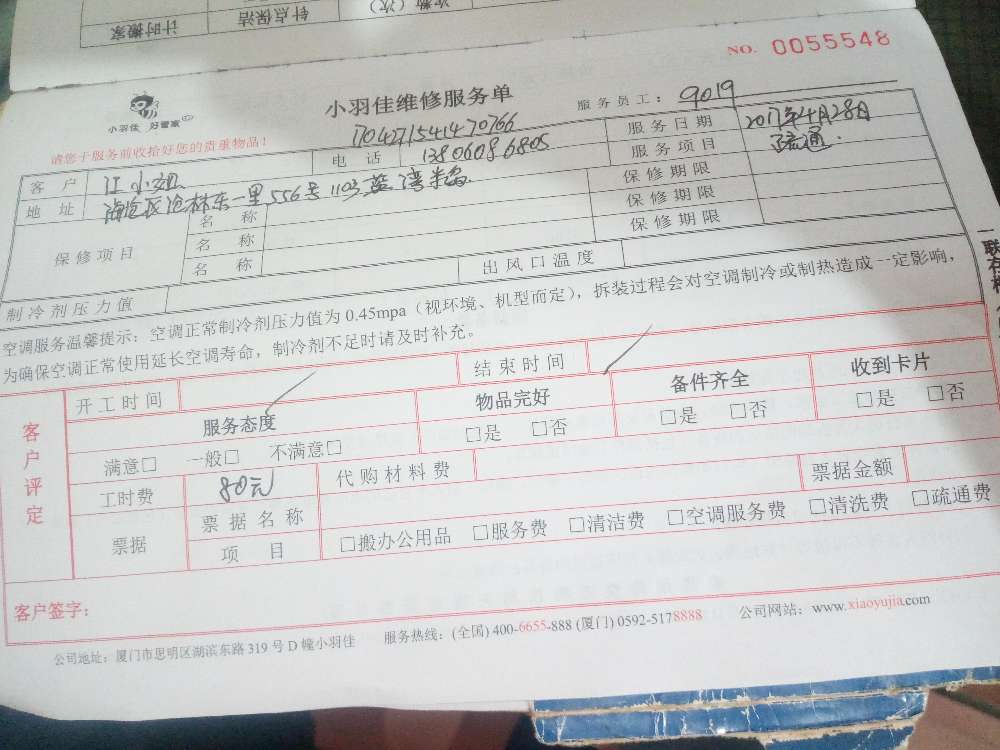 计时搬家 针点保洁 次数（次）
NO. 0055548
小羽佳 好管家
小羽佳维修服务单
服务员工： 9019
170427154147 0766
请您于服务前收拾好您的贵重物品！
客 户 江小姐 电 话 13806086805 服务日期 2017年4月28日
地 址 海沧区沧林东一里556号1103蓝湾半岛 服务项目 疏通
保修项目 名 称 保修期限
名 称 保修期限
名 称 保修期限
制冷剂压力值 出风口温度
空调服务温馨提示：空调正常制冷剂压力值为 0.45mpa（视环境、机型而定），拆装过程会对空调制冷或制热造成一定影响，
为确保空调正常使用延长空调寿命，制冷剂不足时请及时补充。
客户评定
开工时间 结束时间
服务态度 物品完好 备件齐全 收到卡片
满意□ 一般□ 不满意□ □是 □否 □是 □否 □是 □否
工时费 80元 代购材料费 票据金额
票据 票据名称
项 目 □搬办公用品 □服务费 □清洁费 □空调服务费 □清洗费 □疏通费
客户签字：
公司地址：厦门市思明区湖滨东路 319 号 D 幢小羽佳 服务热线：(全国) 400-6655-888 (厦门) 0592-5178888 公司网站：www.xiaoyujia.com